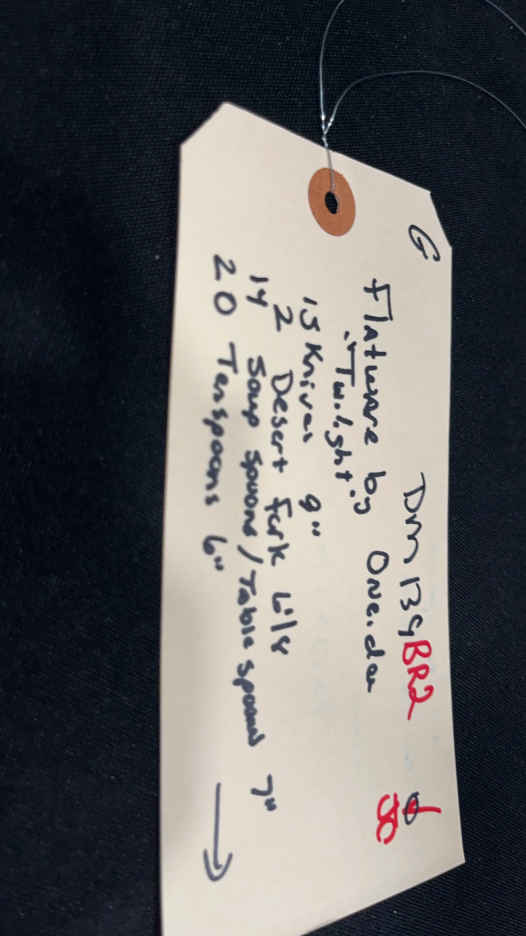 G DM 139 BR2
Flatware by Oneida
"Twilight"
15 Knives 9"
2 Desert Fork Lily
14 Soup Spoons / Table spoons 7"
20 Teaspoons 6" →